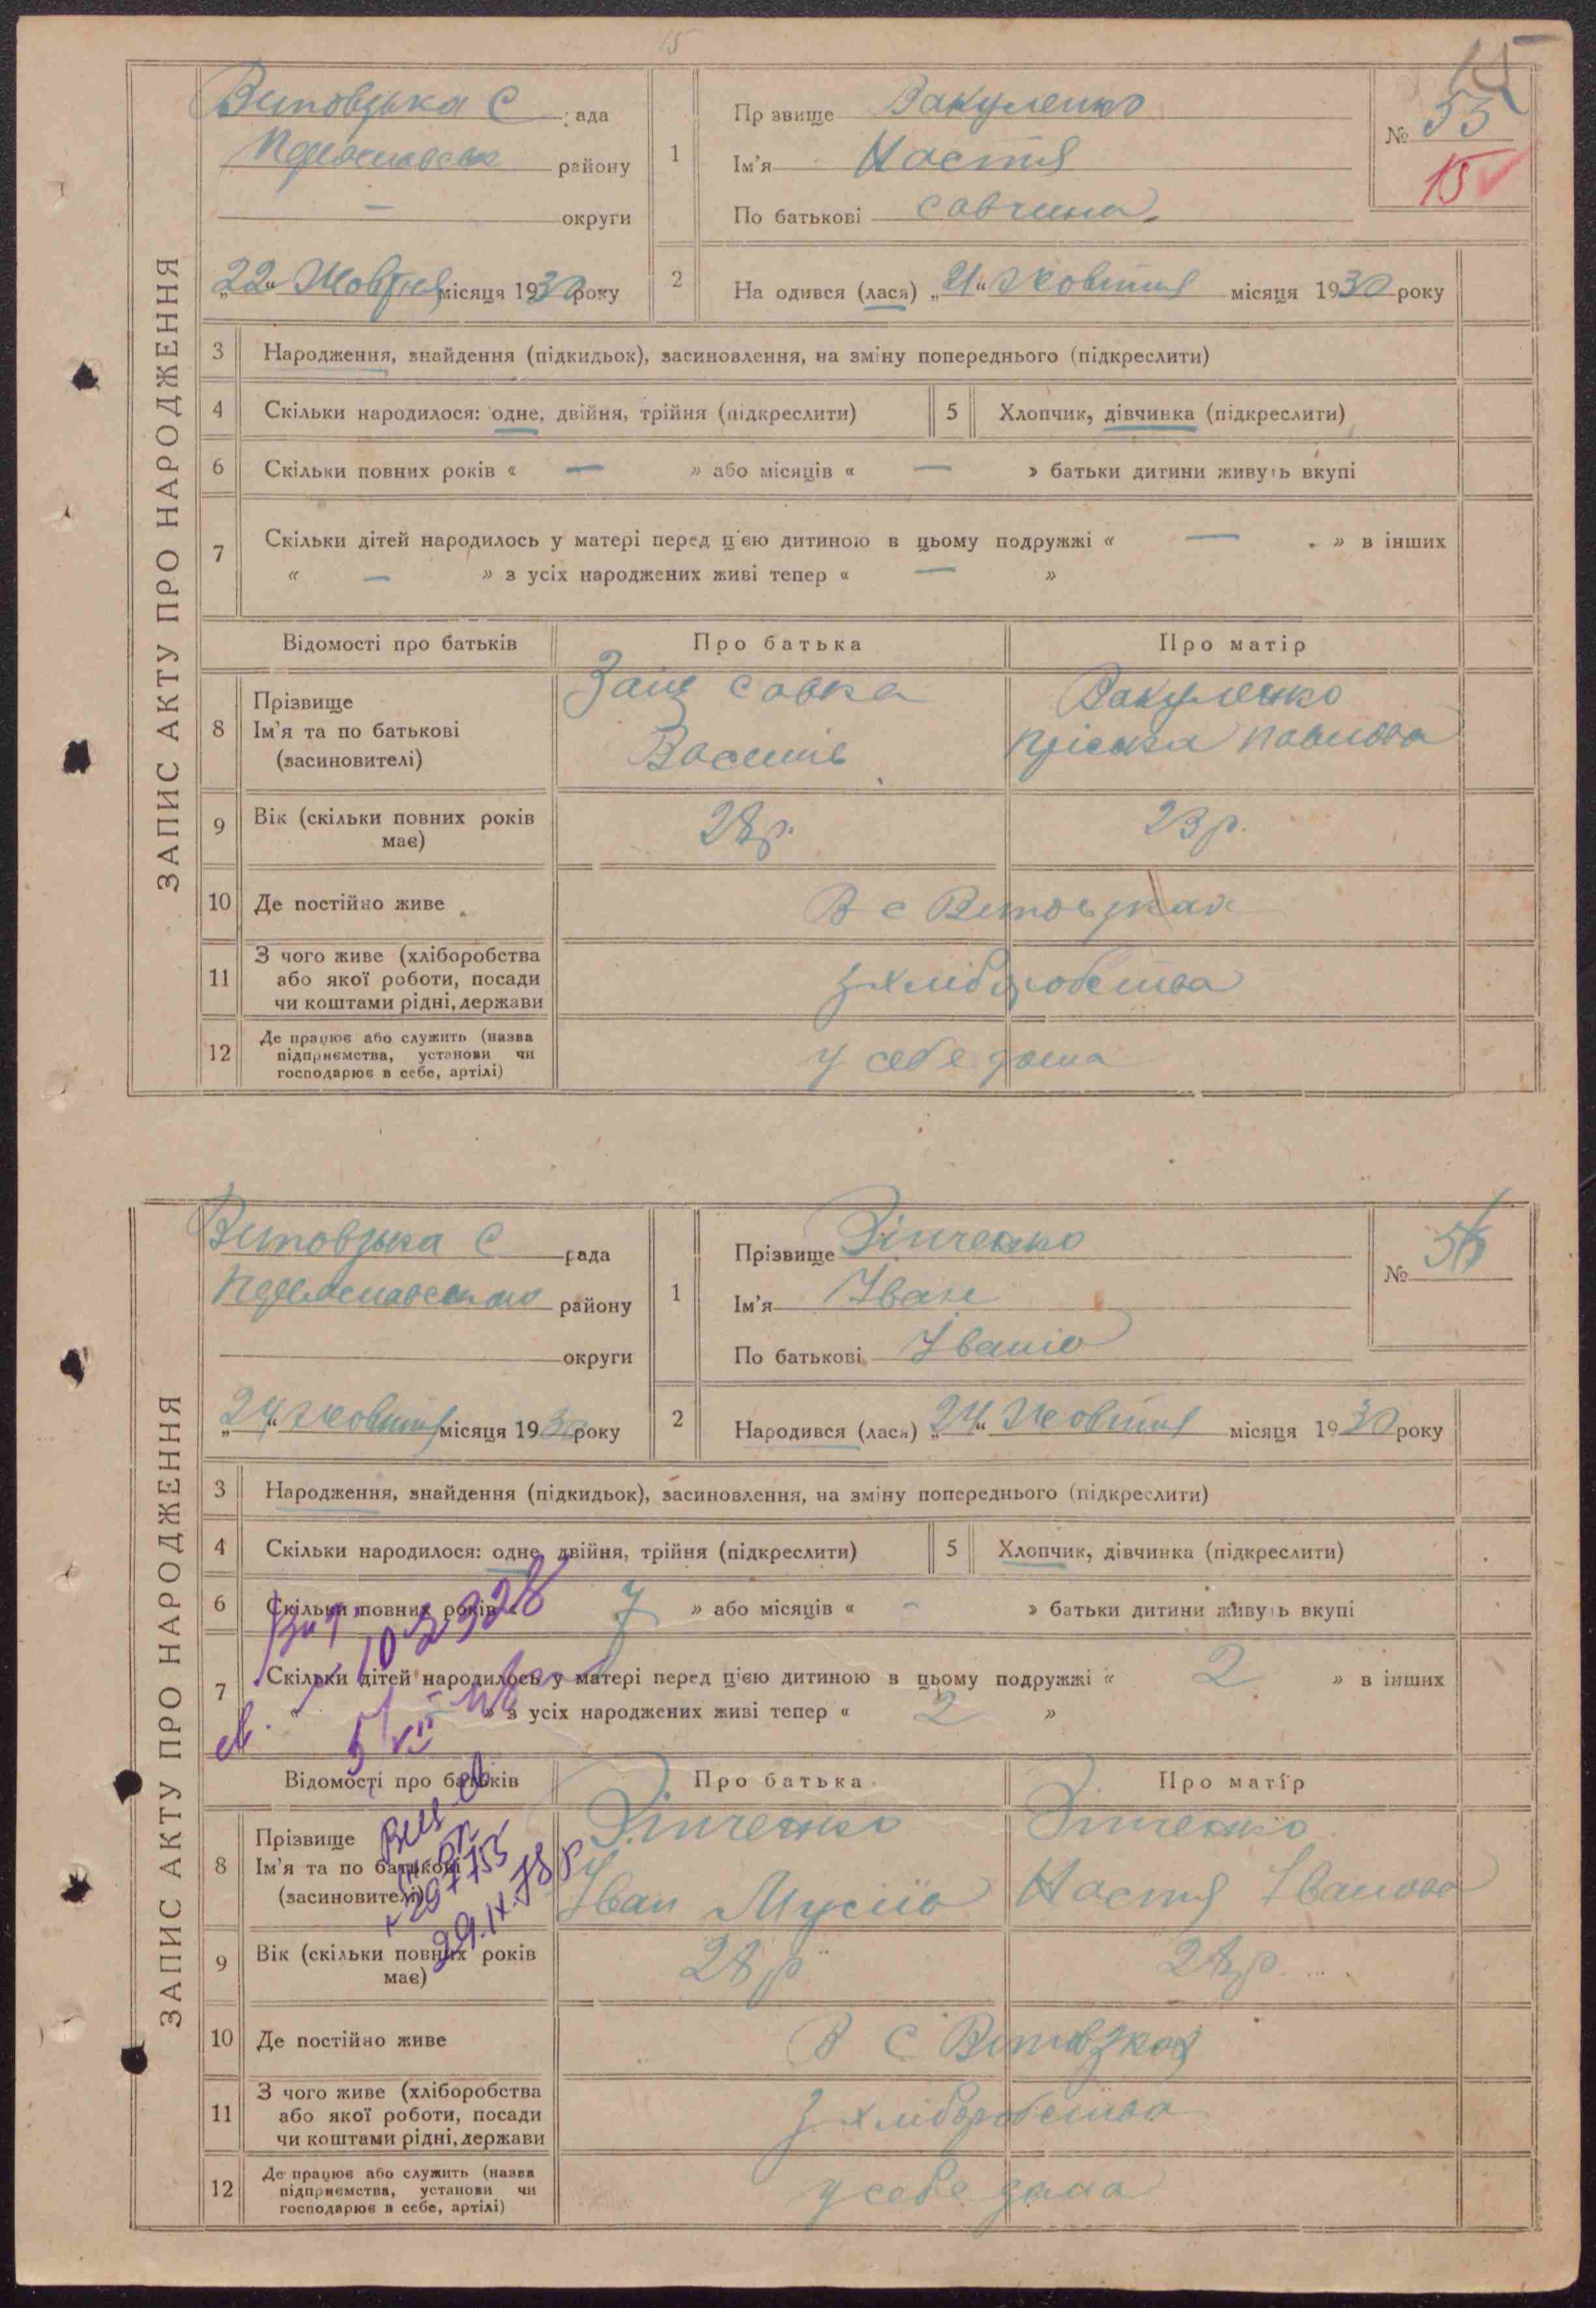 15
ЗАПИС АКТУ ПРО НАРОДЖЕННЯ
Витовзька С рада
району
— округи
„22“ Жовтня місяця 1930 року
1
Прізвище Вакуленко
Ім'я Настя
По батькові Савчина
№ 55
15
2
На одився (лася) „21“ Жовтня місяця 1930 року
3 Народження, знайдення (підкидьок), засиновлення, на зміну попереднього (підкреслити)
4 Скільки народилося: одне, двійня, трійня (підкреслити) 5 Хлопчик, дівчинка (підкреслити)
6 Скільки повних років « — » або місяців « — » батьки дитини живуть вкупі
7 Скільки дітей народилось у матері перед цією дитиною в цьому подружжі « — » в інших
« — » з усіх народжених живі тепер « — »
Відомості про батьків Про батька Про матір
8 Прізвище
Ім'я та по батькові
(засиновителі)
Заяц Савка
Василів
Вакуленко
Пріська Павлова
9 Вік (скільки повних років
має)
28 р. 23 р.
10 Де постійно живе В с
11 З чого живе (хліборобства
або якої роботи, посади
чи коштами рідні, держави
З хліборобства
12 Де працює або служить (назва
підприємства, установи чи
господарює в себе, артілі)
у себе дома
ЗАПИС АКТУ ПРО НАРОДЖЕННЯ
Витовзька С рада
району
округи
„24“ Жовтня місяця 1930 року
1
Прізвище Зінченко
Ім'я Іван
По батькові Іванів
№ 56
2
Народився (лася) „24“ Жовтня місяця 1930 року
3 Народження, знайдення (підкидьок), засиновлення, на зміну попереднього (підкреслити)
4 Скільки народилося: одне, двійня, трійня (підкреслити) 5 Хлопчик, дівчинка (підкреслити)
6 Скільки повних років « 7 » або місяців « - » батьки дитини живуть вкупі
7 Скільки дітей народилось у матері перед цією дитиною в цьому подружжі « 2 » в інших
« - » з усіх народжених живі тепер « 2 »
Відомості про батьків Про батька Про матір
8 Прізвище
Ім'я та по батькові
(засиновителі)
29.IX.78 р
Зінченко
Іван Мусіїв
Зінченко
Настя Іванова
9 Вік (скільки повних років
має)
28 р. 28 р.
10 Де постійно живе В С
11 З чого живе (хліборобства
або якої роботи, посади
чи коштами рідні, держави
З хліборобства
12 Де працює або служить (назва
підприємства, установи чи
господарює в себе, артілі)
у себе дома